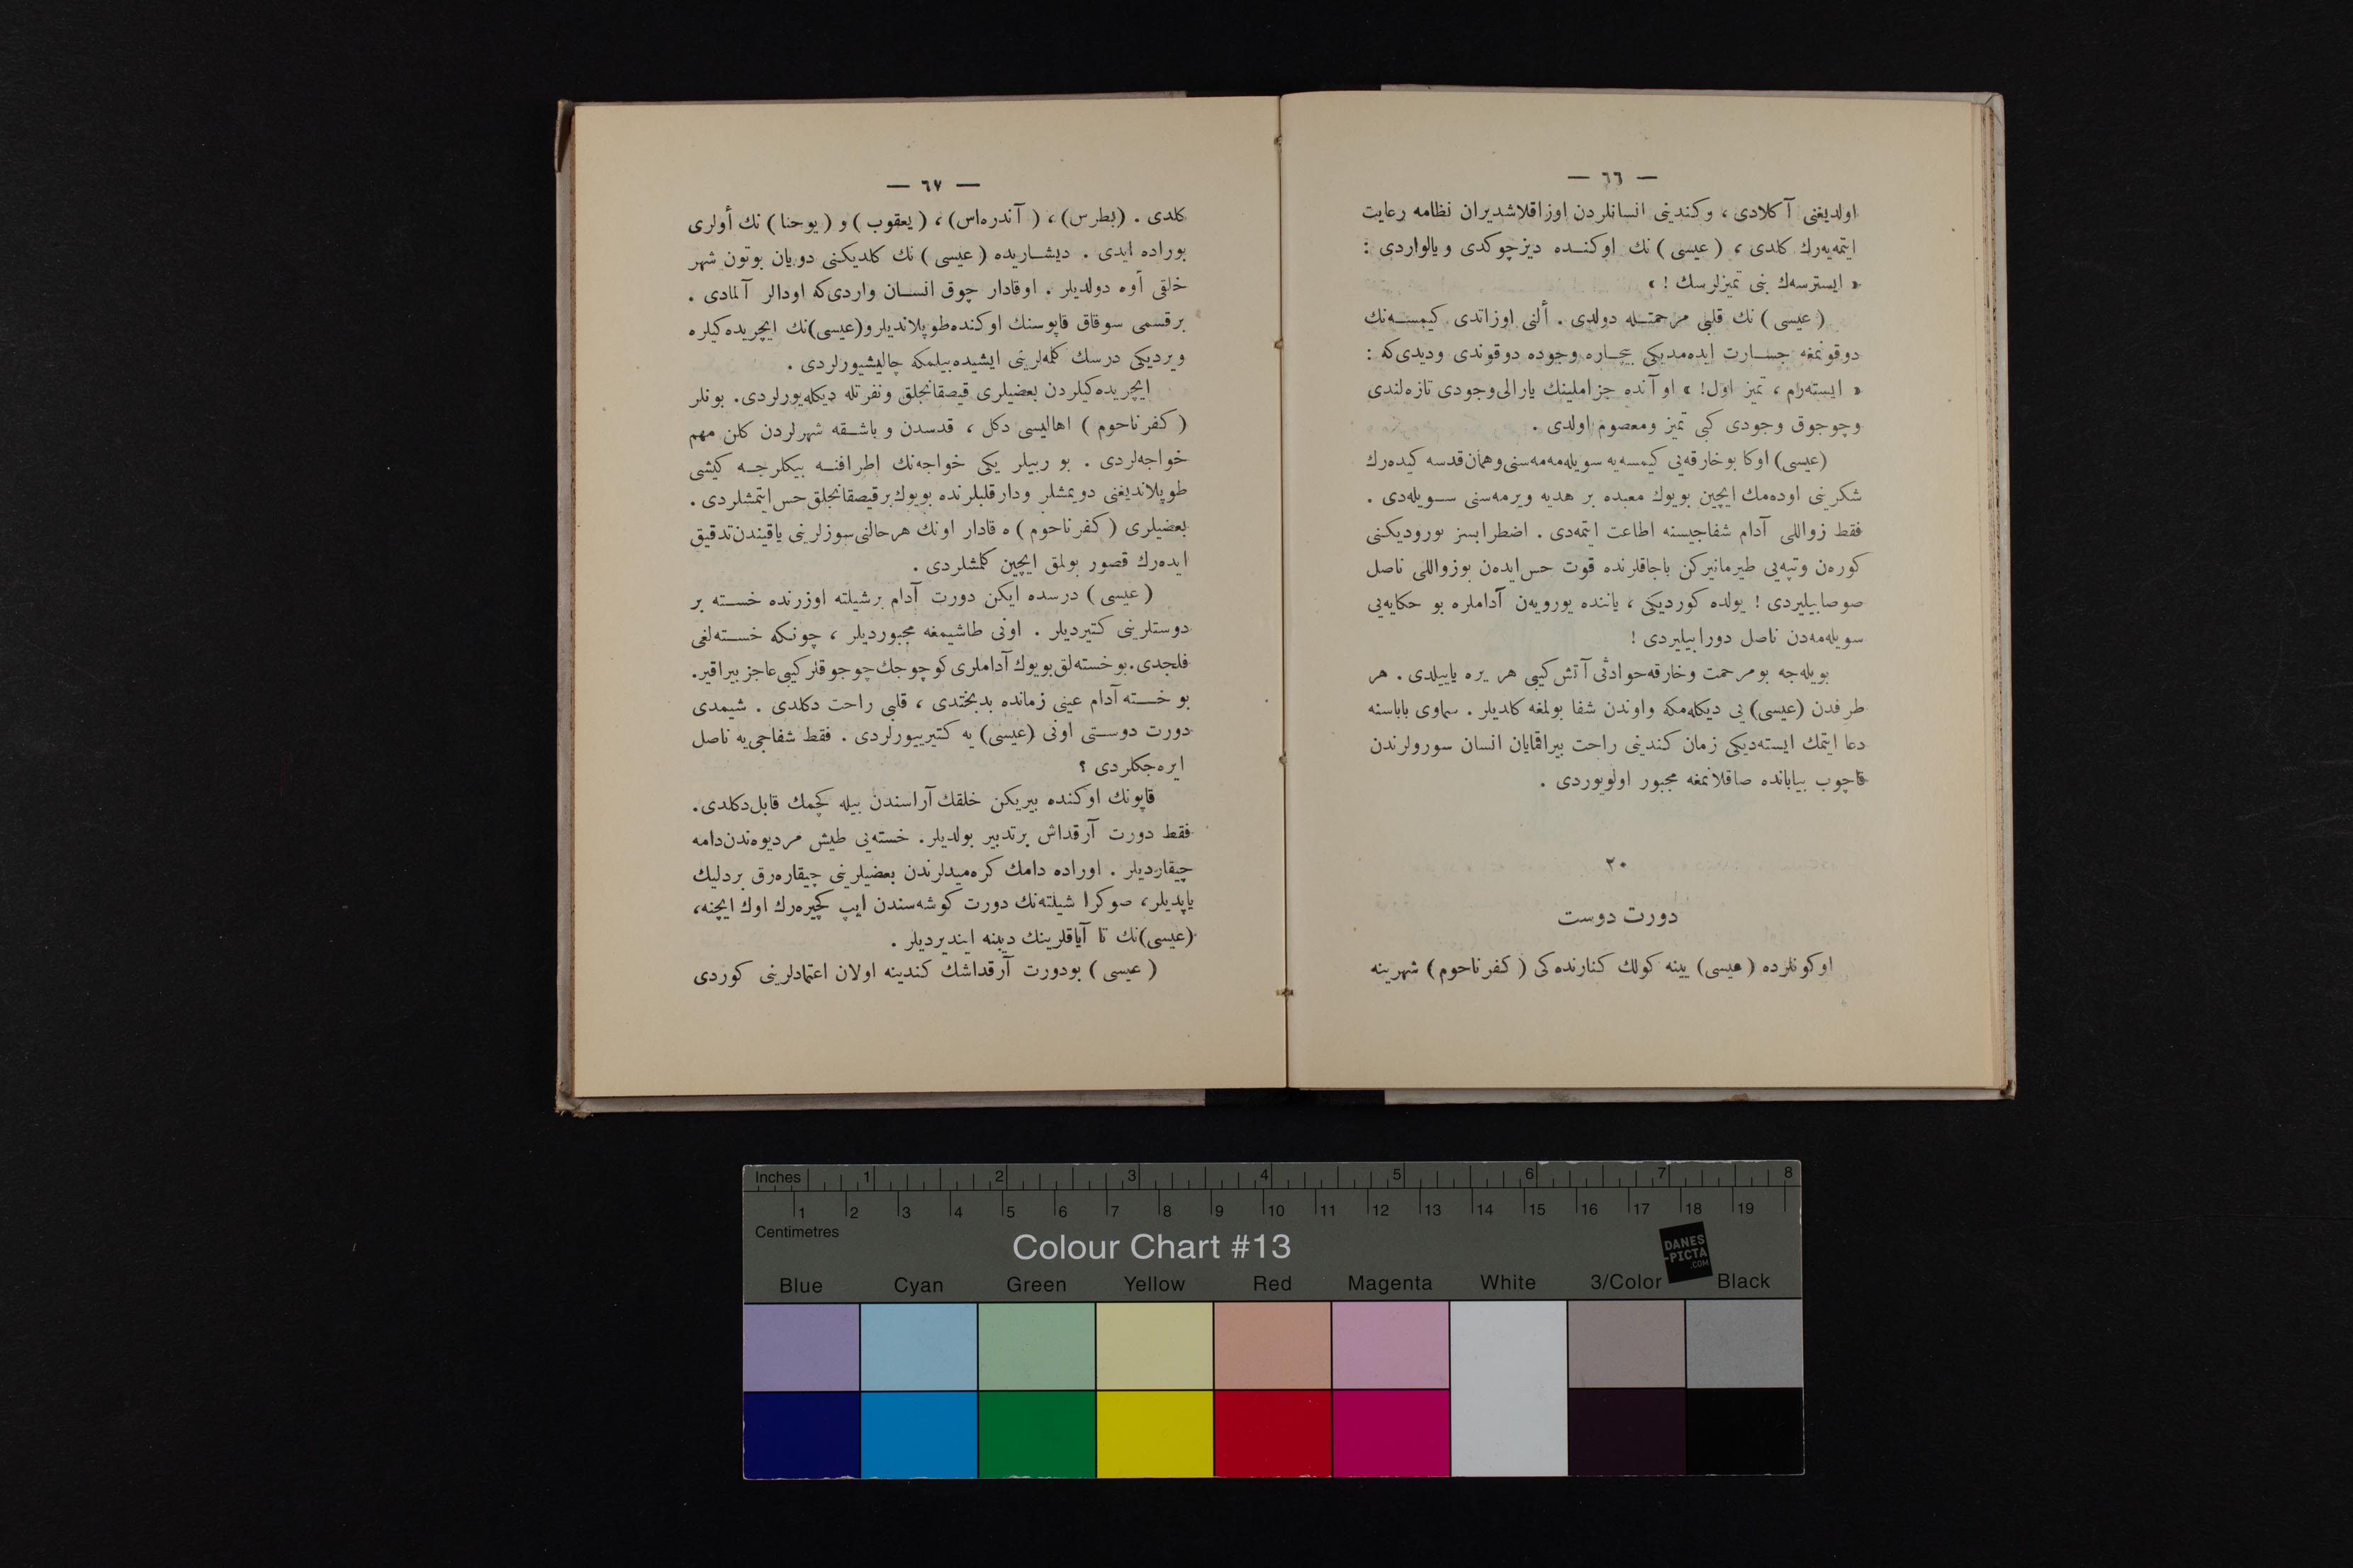 — ٦٦ —
اولديغنى آكلادى ، وكندينى انسانلردن اوزاقلاشديران نظامه رعايت
ايتمه‌يه‌رك كلدى ، ( عيسى ) نك اوكنـده ديزچوكدى ويالواردى :
« ايسترسه‌ك بنى تميزلرسك ! »
( عيسى ) نك قلبى مرحمتـله دولدى . ألنى اوزاتدى كيمسـه‌نك
دوقونمغه جسـارت ايده‌مديكى بيچـاره وجوده دوقوندى وديدى‌كه :
« ايسته‌رم ، تميز اول! » او آنده جزاملينك يارالى‌وجودى تازه‌لندى
وچوجوق وجودى كبى تميز ومعصوم اولدى .
(عيسى) اوكا بوخارقه‌يى كيمسه‌يه سويله‌مه‌مه‌سنى‌وهمان‌قدسه كيده‌رك
شكرينى اوده‌مك ايچين بويوك معبده بر هديه ويرمه‌سنى سـويله‌دى .
فقط زواللى آدام شفاجيسنه اطاعت ايتمه‌دى . اضطرابسز يوروديكنى
كوره‌ن وتپه‌يى طيرمانيركن باجاقلرنده قوت حس‌ايده‌ن بوزواللى ناصل
صوصابيليردى ! يولده كورديكى ، ياننده يورويه‌ن آداملره بو حكايه‌يى
سويله‌مه‌دن ناصل دورابيليردى !
بويله‌جه بومرحمت وخارقه‌حوادثى آتش‌كيبى هر يره ياييلدى . هر
طرفدن (عيسى) يى ديكله‌مكه واوندن شفا بولمغه كلديلر . سماوى باباسنه
دعا ايتمك ايسته‌ديكى زمان كندينى راحت بيراقمايان انسان سورولرندن
قاچوب بياباندە صاقلانمغه مجبور اولويوردى .
٢٠
دورت دوست
اوكونلرده (عيسى) يينه كولك كنارنده‌كى ( كفرناحوم ) شهرينه
— ٦٧ —
كلدى . (بطرس) ، ( آندره‌اس) ، ( يعقوب ) و ( يوحنا ) نك أولرى
بوراده ايدى . ديشـاريده ( عيسى ) نك كلديكنى دويان بوتون شهر
خلقى أوه دولديلر . اوقادار چوق انسـان واردى‌كه اودالر آلمادى .
برقسمى سوقاق قاپوسنك اوكنده‌طوپلانديلرو(عيسى)نك ايچريده‌كيلره
ويرديكى درسك كلمه‌لرينى ايشيده‌بيلمكه چاليشيورلردى .
ايچريده‌كيلردن بعضيلرى قيصقانجلق ونفرتله ديكله‌يورلردى. بونلر
( كفرناحوم ) اهاليسى دكل ، قدسدن و باشـقه شهرلردن كلن مهم
خواجه‌لردى . بو ربيلر يكى خواجه‌نك اطرافنـه بيكلرجـه كيشى
طوپلانديغنى دويمشلر ودارقلبلرنده بويوك‌برقيصقانجلق‌حس ايتمشلردى .
بعضيلرى ( كفرناحوم ) ه قادار اونك هرحالنى‌سوزلرينى ياقيندن‌تدقيق
ايده‌رك قصور بولمق ايچين كلمشلردى .
( عيسى ) درسده ايكن دورت آدام برشيلته اوزرنده خسـته بر
دوستلرينى كتيرديلر . اونى طاشيمغه مجبورديلر ، چونكه خسـته‌لغى
فلجدى.بوخسته‌لق‌بويوك آداملرى‌كوچوجك‌چوجوقلركيبى‌عاجز بيراقير.
بو خسـته آدام عينى زمانده بدبختدى ، قلبى راحت دكلدى . شيمدى
دورت دوسـتى اونى (عيسى) يه كتيرييورلردى . فقط شفاجى‌يه ناصل
ايره‌جكلردى ؟
قاپونك اوكنده بيريكن خلقك آراسندن بيله كچمك قابل‌دكلدى.
فقط دورت آرقداش برتدبير بولديلر. خسته‌يى طيش مرديوه‌ندن‌دامه
چيقارديلر . اوراده دامك كره‌ميدلرندن بعضيلرينى چيقاره‌رق بردليك
ياپديلر، صوكرا شيلته‌نك دورت كوشه‌سندن ايپ كچيره‌رك اوك ايچنه،
(عيسى)نك تا آياقلرينك ديبنه اينديرديلر .
( عيسى ) بودورت آرقداشك كندينه اولان اعتمادلرينى كوردى
Inches 1 2 3 4 5 6 7 8
1 2 3 4 5 6 7 8 9 10 11 12 13 14 15 16 17 18 19
Centimetres
Colour Chart #13
DANES
-PICTA
.COM
Blue Cyan Green Yellow Red Magenta White 3/Color Black